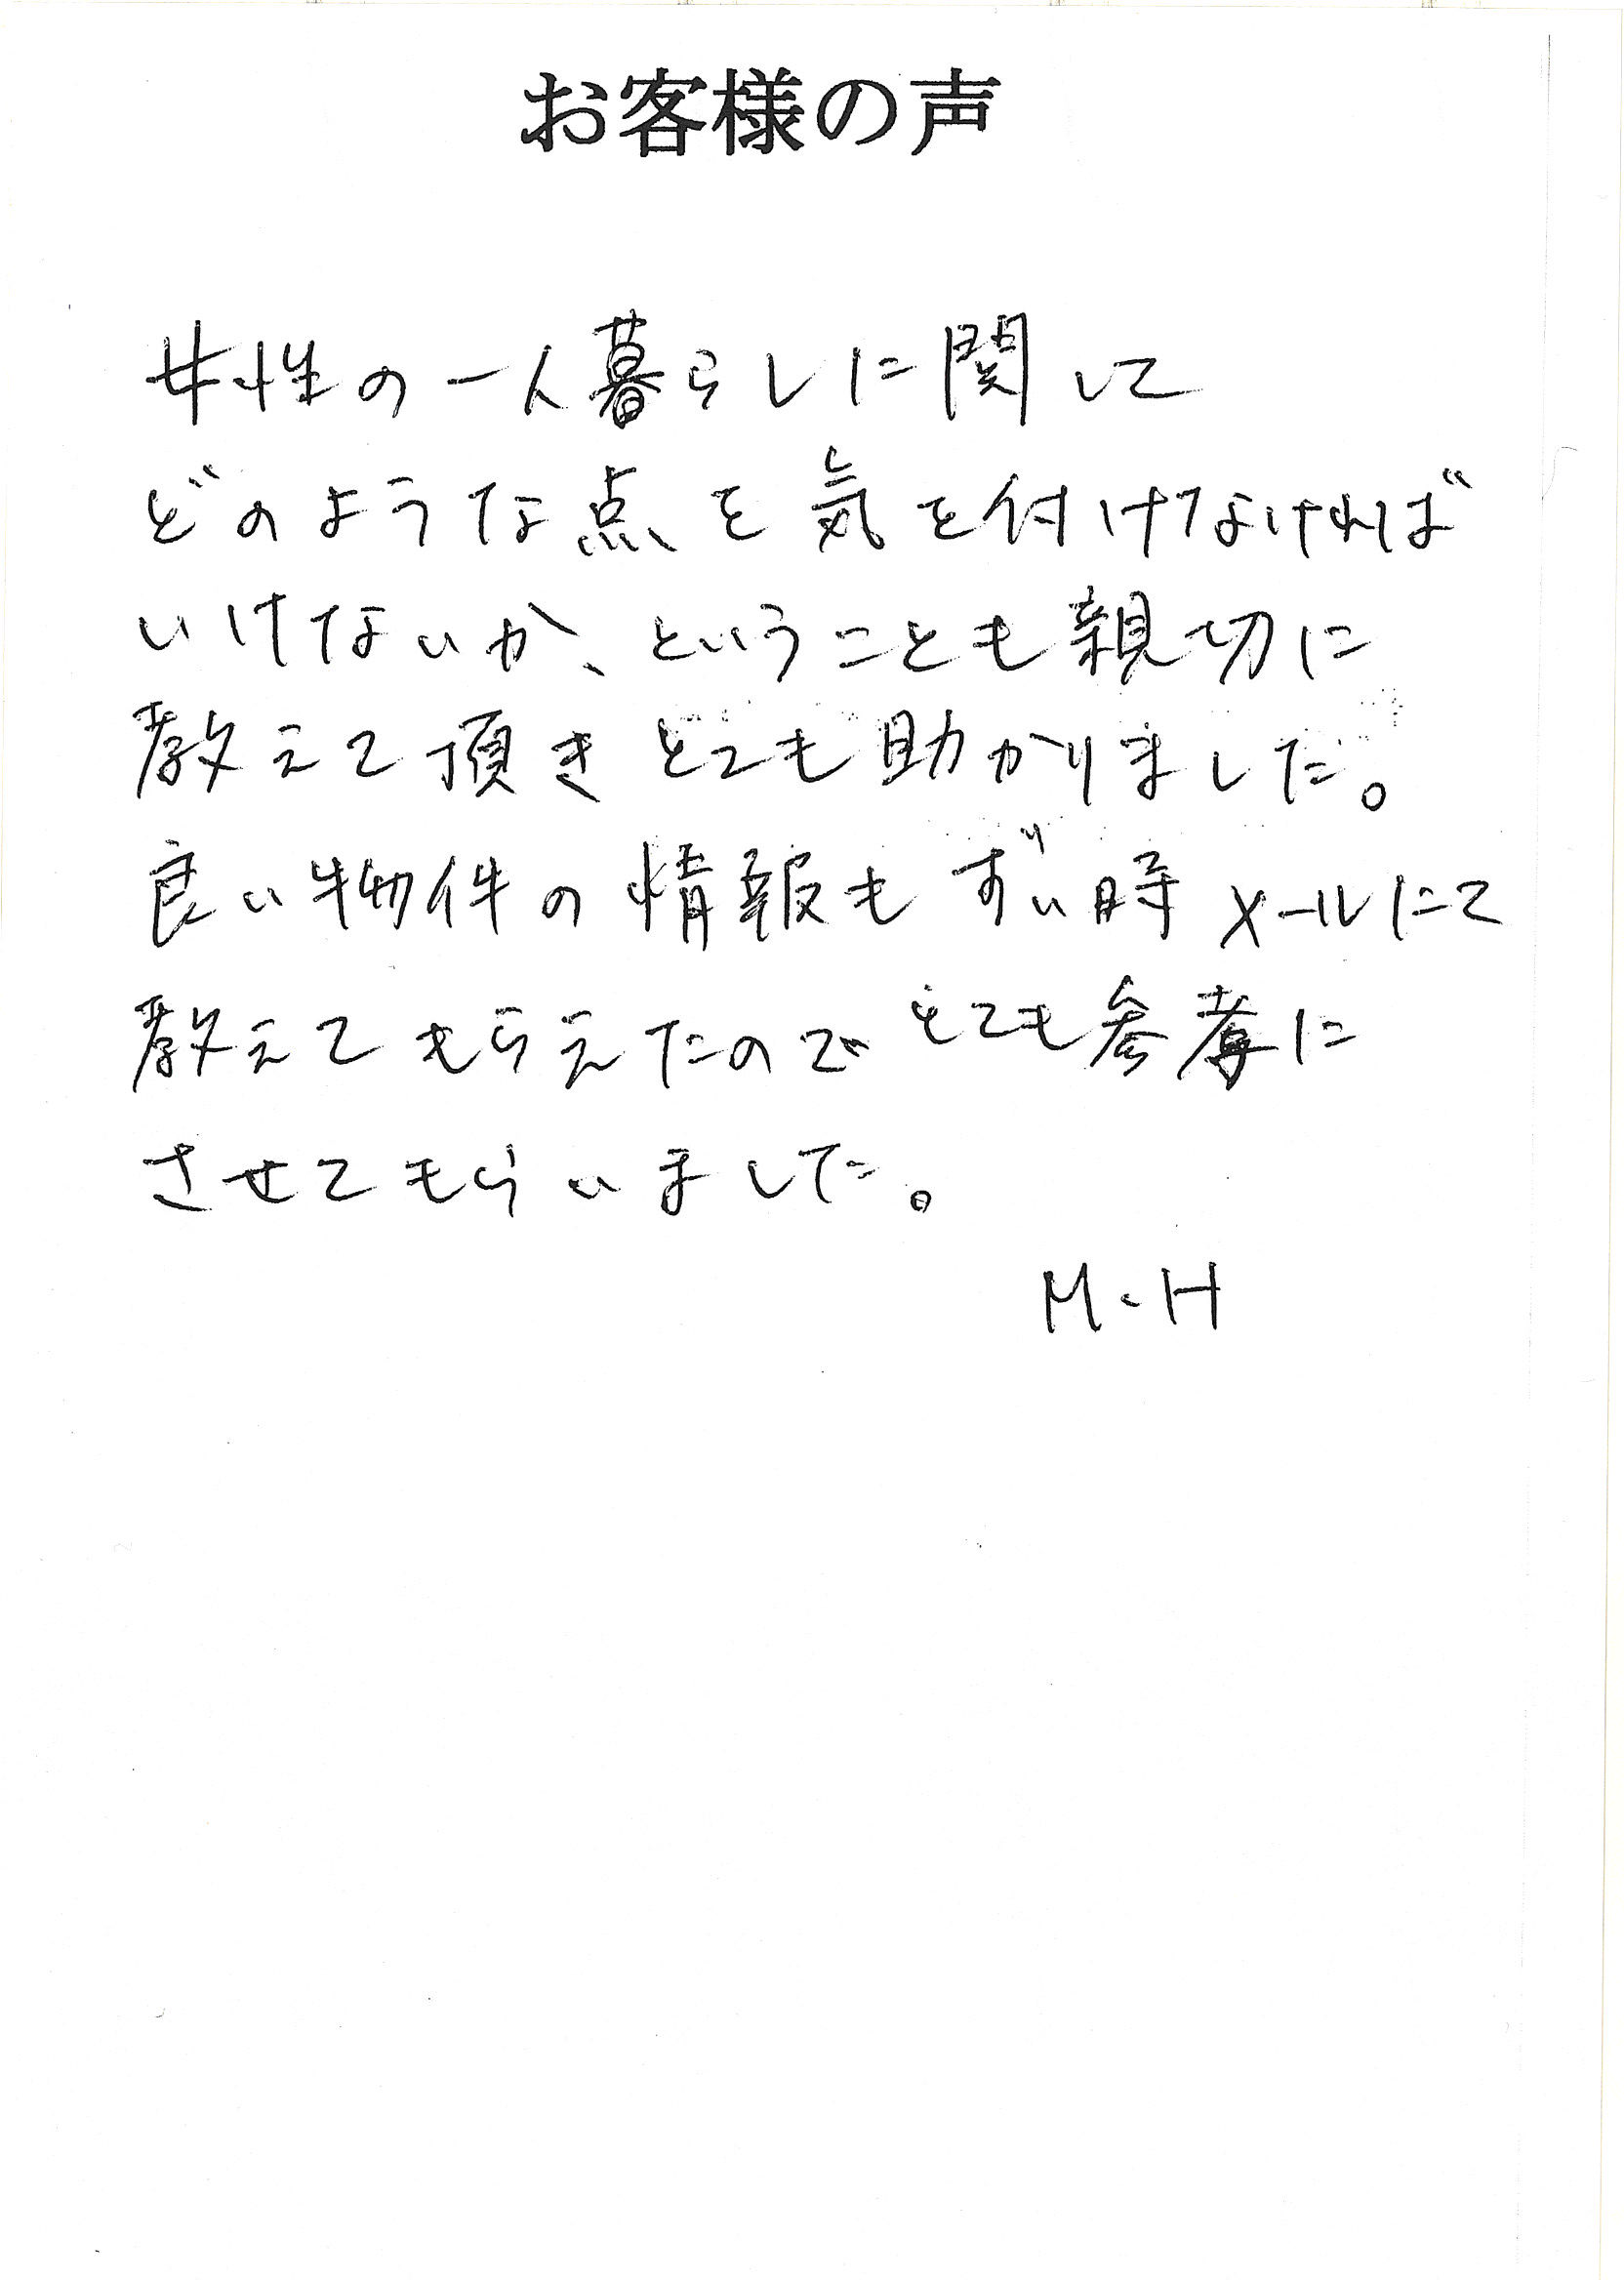 お客様の声
女性の一人暮らしに関して
どのような点を気を付けなければ
いけないか、ということも親切に
教えて頂きとても助かりました。
良い物件の情報もずい時メールにて
教えてもらえたのでとても参考に
させてもらいました。
M.H